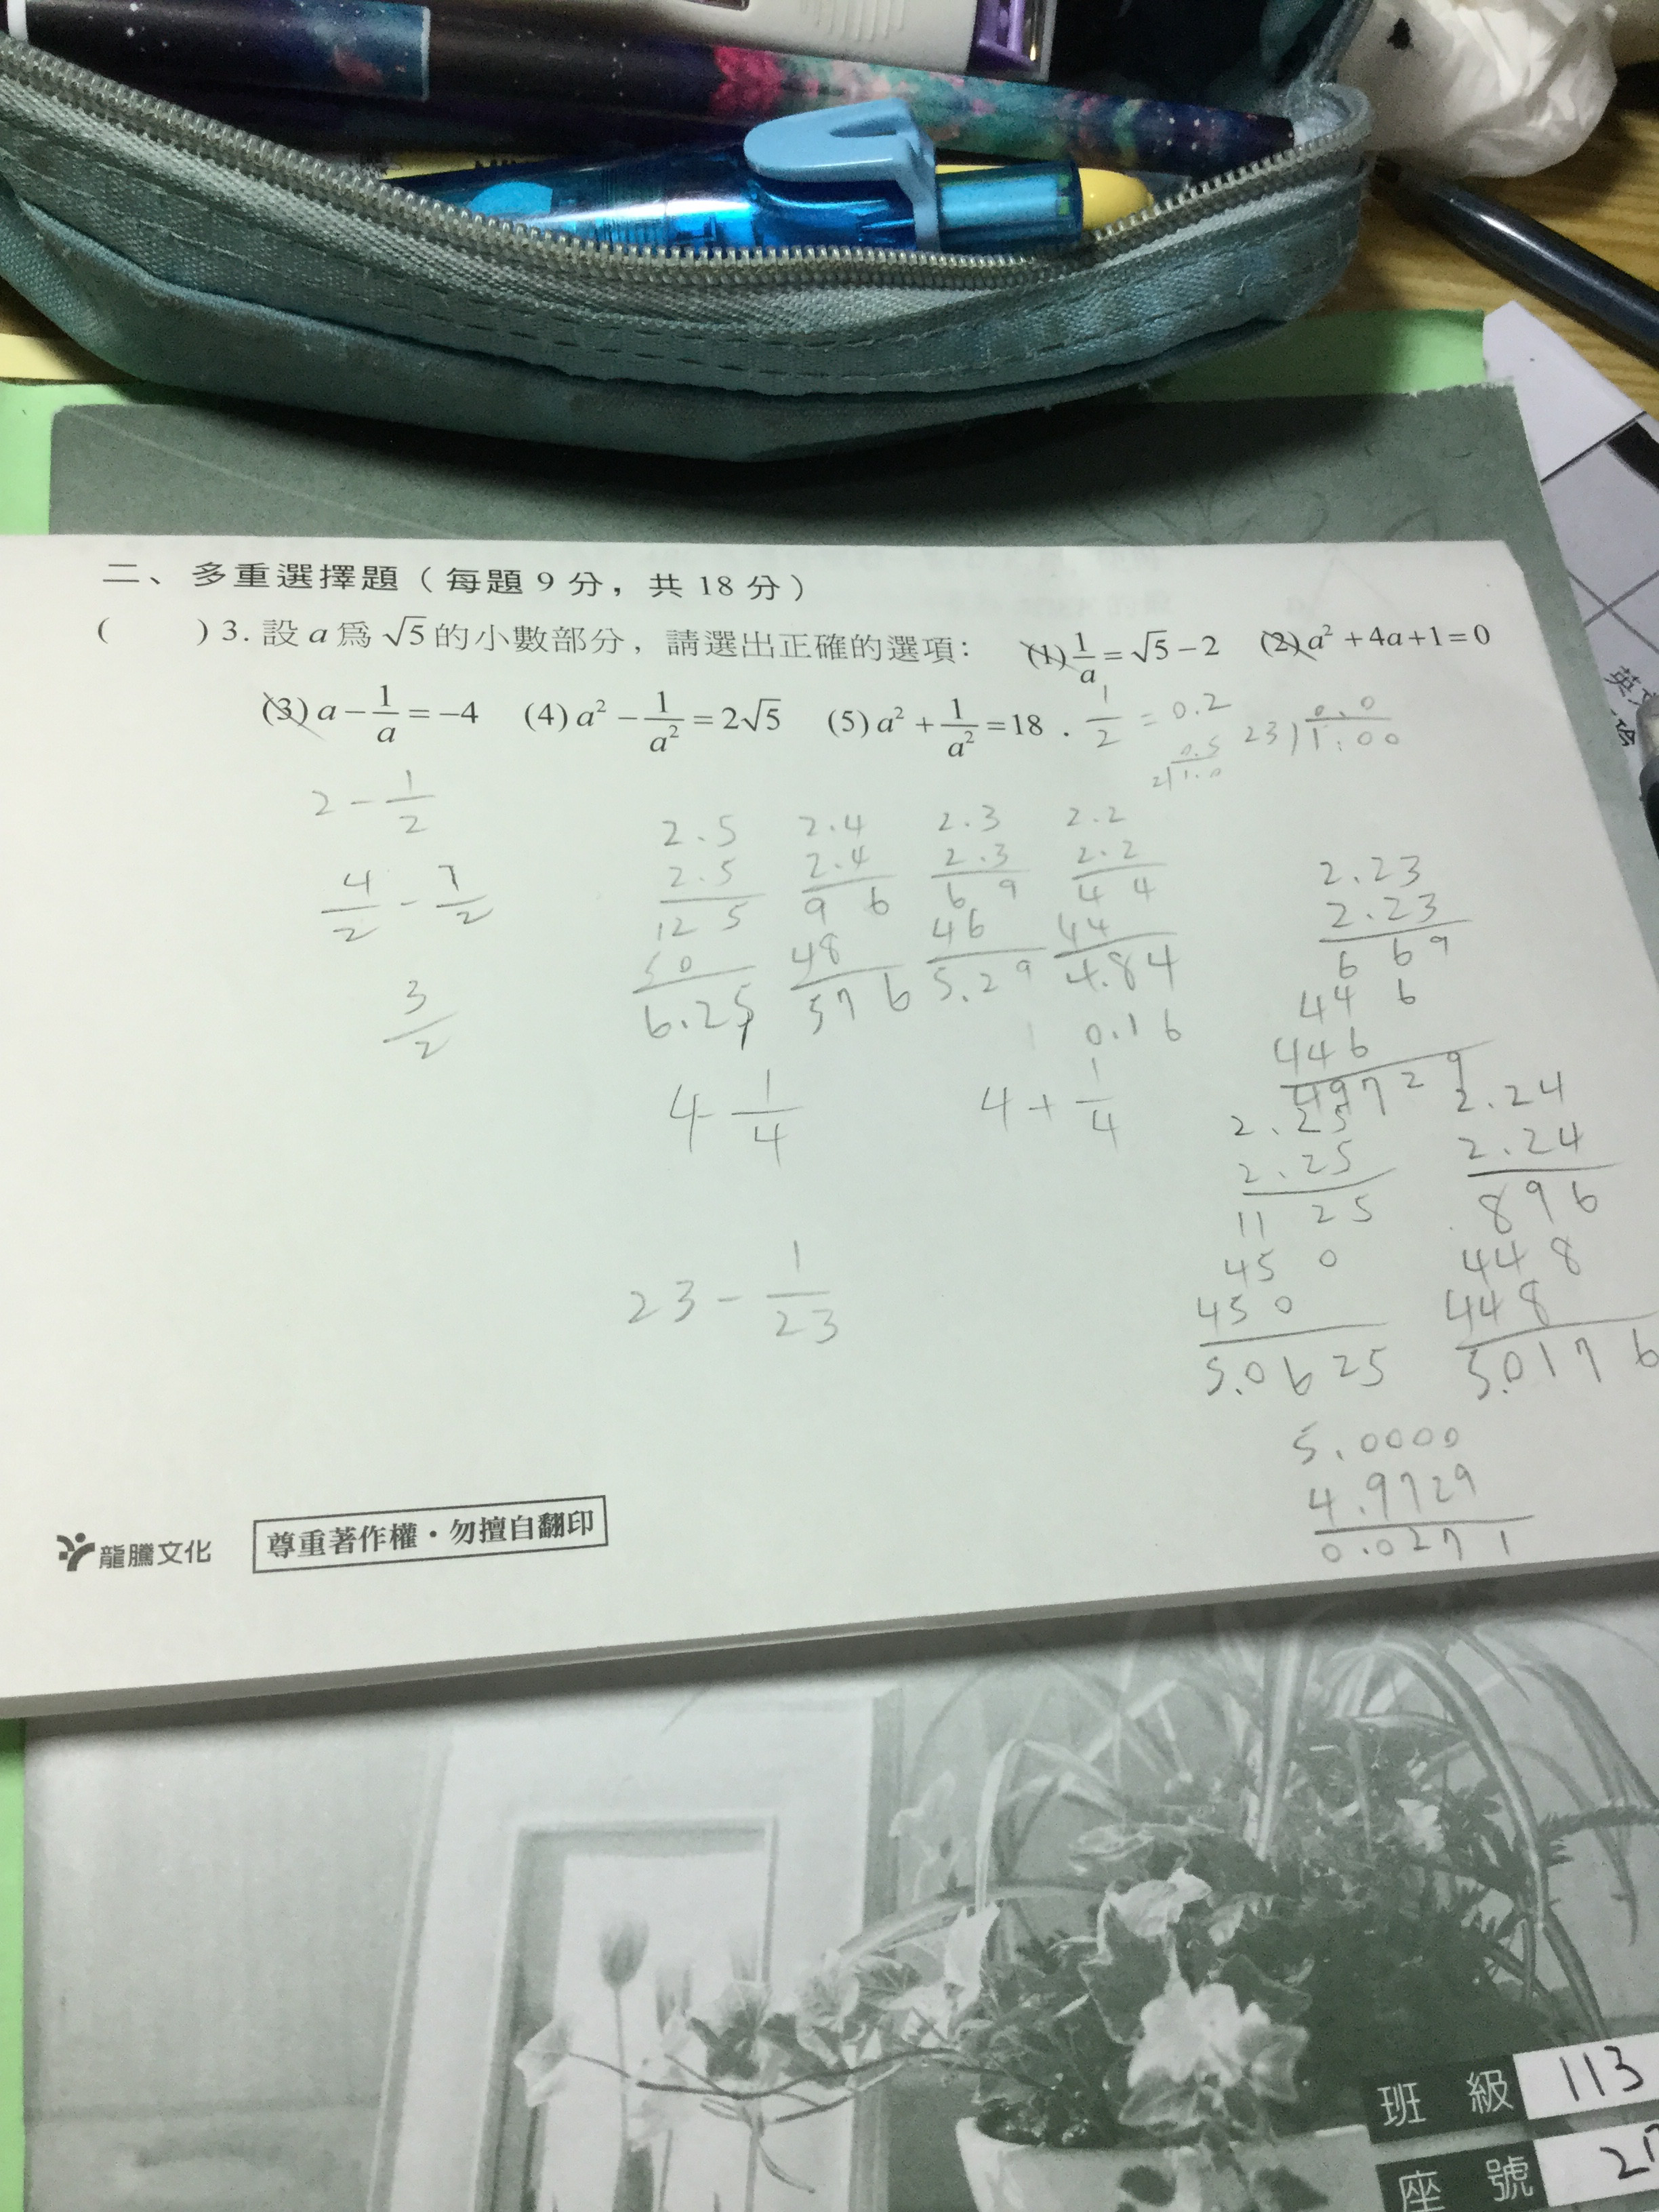 二、多重選擇題（每題9分，共18分）
(　　) 3. 設 a 為 √5 的小數部分，請選出正確的選項： (1) 1/a = √5 − 2 (2) a² + 4a + 1 = 0
(3) a − 1/a = −4 (4) a² − 1/a² = 2√5 (5) a² + 1/a² = 18 .
1/2 = 0.2
0.5
2)1.0
0.0
23)1.00
2 − 1/2
4/2 − 1/2
3/2
2.5
2.5
12 5
50
6.25
2.4
2.4
9 6
48
576
2.3
2.3
6 9
46
5.29
2.2
2.2
4 4
44
4.84
0.16
2.23
2.23
6 6 9
44 6
446
49729
4 − 1/4
4 + 1/4
2.25
2.25
11 25
45 0
450
5.0625
2.24
2.24
896
44 8
448
5.0176
23 − 1/23
5.0000
4.9729
0.0271
龍騰文化
尊重著作權・勿擅自翻印
班級 113
座號